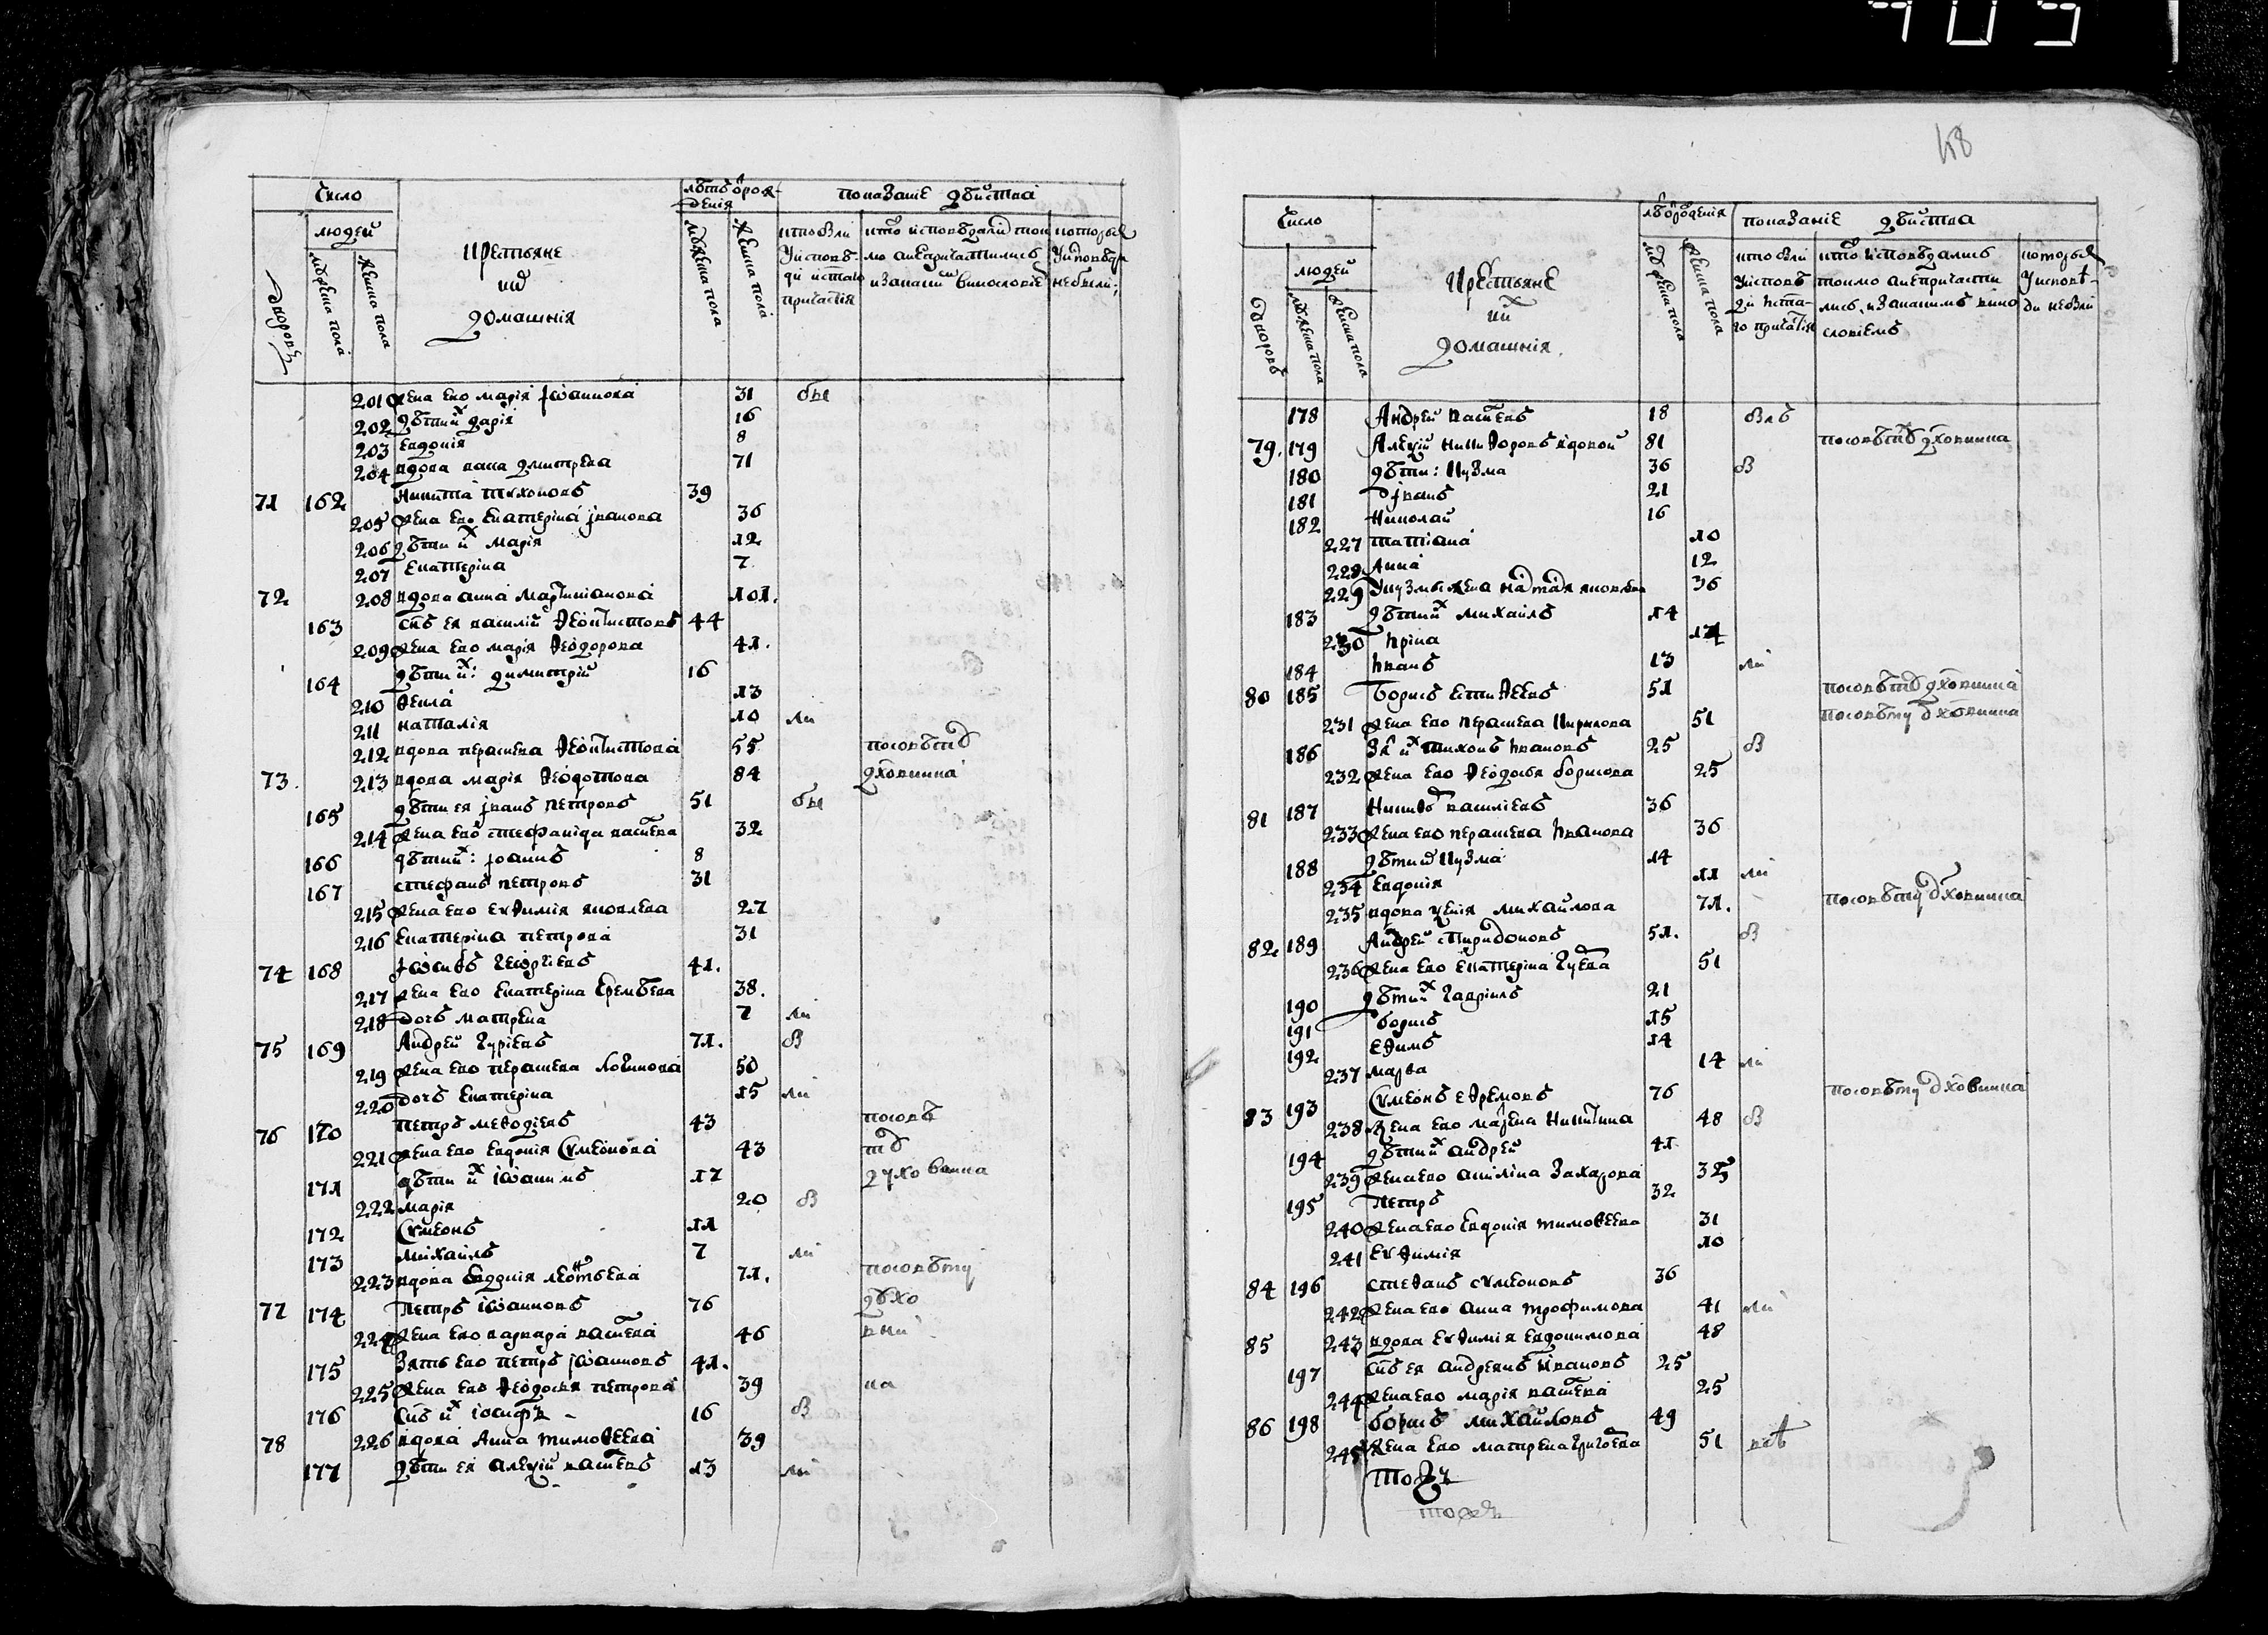 405
Число
людей
дворовъ
мужеска пола
женска пола
Крестьяне
и
домашнія
лѣтъ от рожденія
мужеска пола
женска пола
показаніе действа
кто были у исповеди и с̃таго причастія
кто исповедали токмо а не причастились и за каким винословіем
которые у исповеди не были
201 жена его марія Іωаннова 31 бы
202 дѣти их дарія 16
203 Евдокія 8
204 вдова васа дмитрева 71
71 162 Никита тихоновъ 39
205 жена его Екатеріна іванова 36
206 дѣти их Марія 12
207 Екатеріна 7
72 208 вдова анна Мартиніанова 101
163 сн̃ъ ея василій Ѳеоктистовъ 44
209 жена его марія Ѳеодорова 41
164 дѣти их: димитрій 16
210 Ѳекла 13
211 наталія 10 ли
212 вдова параскева Ѳеоктистова 55 посовѣту
73 213 вдова марія Ѳеодотова 84 дховника
165 дѣти ея іванъ петровъ 51 бы
214 жена его стефанида васілева 32
166 дѣти их: іоаннъ 8
167 стефанъ петровъ 31
215 жена его Евѳимія яковлева 27
216 Екатеріна петрова 31
74 168 Іωсиѳъ Геωргіевъ 41
217 жена его Екатеріна Еремѣева 38
218 дочъ матрена 7 ли
75 169 Андрей Гуріевъ 71 в
219 жена его параскева логинова 50
220 дочъ Екатеріна 15 ли
76 170 петръ меѳодіевъ 43 посовѣ
221 жена его Евдокія Сѵмеонова 43 ту
171 дѣти их іωаннъ 17 духовника
222 марія 20 в
172 Сѵмеонъ 11
173 михаилъ 7 ли
223 вдова Евдокія леонтьева 71 посовѣту
77 174 петръ іωанновъ 76 дхо
224 жена его варвара васілева 46 вни
175 зять его петръ іωанновъ 41
225 жена его Ѳеодосья петрова 39 ка
176 сн̃ъ их іосифъ 16 в
78 226 вдова Анна тимоѳеева 39
177 дѣти ея алеѯій васілевъ 13 ли
48
Число
людей
дворовъ
мужеска пола
женска пола
Крестьяне
их
домашнія
лѣтъ от рожденія
мужеска пола
женска пола
показаніе действа
кто были у исповеди и с̃таго причастія
кто исповедались токмо а не причастились, и за каким винословіемъ
которые у исповеди не были
178 Андрей васілевъ 18 былъ
79 179 Алеѯій никифоровъ вдовой 81 посовѣту дховника
180 дѣти: Кузма 36 в
181 іванъ 21
182 Николай 16
227 татіана 10
228 Анна 12
229 У кузмы жена наталья яковлева 36
183 дѣти их михаилъ 14
230 Ірина 14
184 Іванъ 13 ли
80 185 Борисъ Евтиѳеевъ 51 посовѣту дховника
231 жена его параскева Кирилова 51 посовѣту дховника
186 зя их тихонъ Івановъ 25 в
232 жена его Ѳеодосья борисова 25
81 187 Никита василіевъ 36
233 жена его параскева Іванова 36
188 дѣти их Кузма 14
234 Евдокія 11 ли
235 вдова ѯенія михаилова 71 посовѣту дховника
82 189 Андрей спиридоновъ 51 в
236 жена его Екатеріна Гуева 51
190 дѣти их Гавріилъ 21
191 борисъ 15
192 Еѳимъ 14
237 марѳа 14 ли
83 193 Сѵмеонъ Еѳремовъ 76 посовѣту дховника
238 жена его марѳа Никитина 48 в
194 дѣти их андрей 41
239 жена его акилина Захарова 35
195 Петръ 32
240 жена его Евдокія тимоѳеева 31
241 Евѳимія 10
84 196 стеѳанъ сѵмеоновъ 36
242 жена его анна трофимова 41 ли
85 243 вдова Евѳимія Евдокимова 48
197 сн̃ъ ея андреянъ Івановъ 25
244 жена его марія васілева 25
86 198 борисъ михаиловъ 49
245 жена его матрена Григоева 51
тогожъ
тогожъ